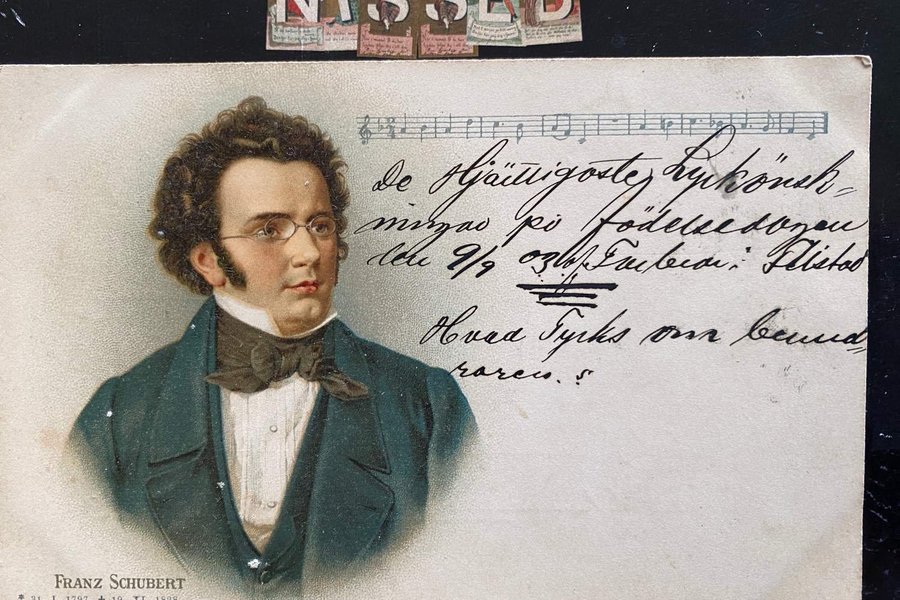 NISSED
De Hjärtligaste Lyckönsk-
ningar på födelsedagen
den 9/9 03
Hvad Tycks om beund-
raren.?
FRANZ SCHUBERT
* 31. I. 1797. † 19. XI. 1828.